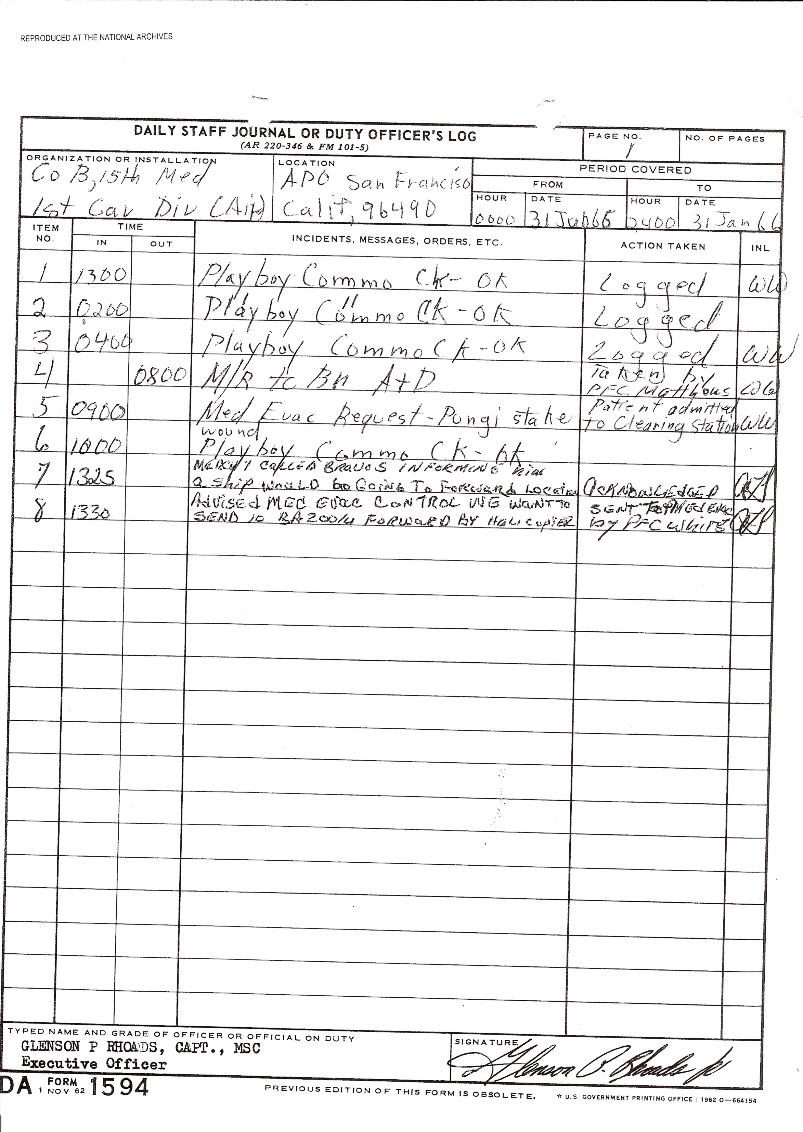 REPRODUCED AT THE NATIONAL ARCHIVES
DAILY STAFF JOURNAL OR DUTY OFFICER'S LOG
(AR 220-346 & FM 101-5)
PAGE NO.
1
NO. OF PAGES
ORGANIZATION OR INSTALLATION
Co B, 15th Med
1st Cav Div (Air)
LOCATION
APO San Francisco
Calif, 96490
PERIOD COVERED
FROM
TO
HOUR
DATE
HOUR
DATE
0000
31 Jan 66
2400
31 Jan 66
ITEM NO.
TIME
IN
OUT
INCIDENTS, MESSAGES, ORDERS, ETC.
ACTION TAKEN
INL
1 1300 Playboy Commo CK - OK Logged WW
2 0200 Playboy Commo CK - OK Logged
3 0400 Playboy Commo CK - OK Logged WW
4 0800 M/R to Bn A+D Taken by
PFC
5 0900 Med Evac Request - Pungi stake Patient admitted
wound to Clearing Station WW
6 1000 Playboy Commo CK - OK
7 1325 MERCY 1 CALLED BRAVO 5 INFORMING him
a ship WOULD be GOING TO FORWARD Location ACKNOWLEDGED
8 1330 ADVISED MED EVAC CONTROL WE WANT TO SENT TO MED EVAC
SEND 10 FORWARD BY HELICOPTER by PFC WHITE
TYPED NAME AND GRADE OF OFFICER OR OFFICIAL ON DUTY
GLENSON P RHOADS, CAPT., MSC
Executive Officer
SIGNATURE
Glenson P. Rhoads Jr
DA FORM 1 NOV 62 1594
PREVIOUS EDITION OF THIS FORM IS OBSOLETE.
☆ U.S. GOVERNMENT PRINTING OFFICE : 1962 O—664154